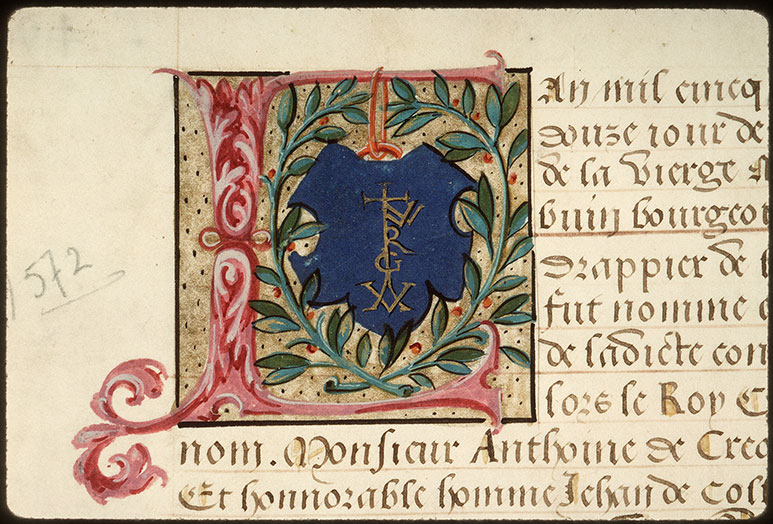 LAn mil cincq
douze iour de
de la vierge
buin bourgeoi
drappier de
fut nomme
de ladicte con
lors le Roy C
nom. Monsieur Anthoine de Creq
Et honnorable homme Jehan de Coll
1572